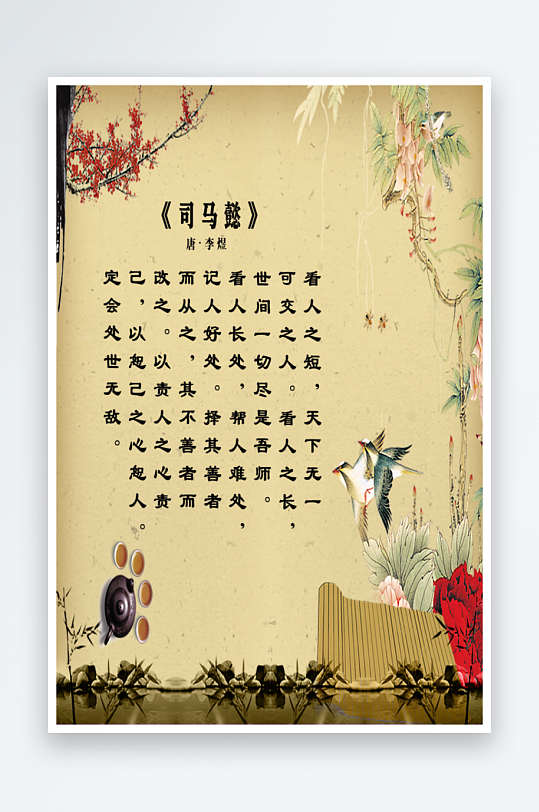 《司马懿》
唐·李煜
看人之短，天下无一
可交之人。看人之长，
世间一切尽是吾师。
看人长处，帮人难处，
记人好处。择其善者
而从之，其不善者而
改之。以责人之心责
己，以恕己之心恕人。
定会处世无敌。